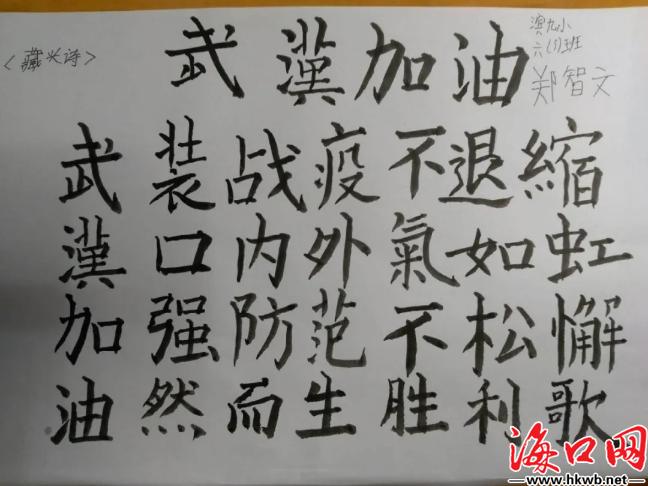 〈藏头诗〉
武漢加油
九小
班
郑智文
武装战疫不退縮
漢口内外氣如虹
加强防范不松懈
油然而生胜利歌
海口网
www.hkwb.net